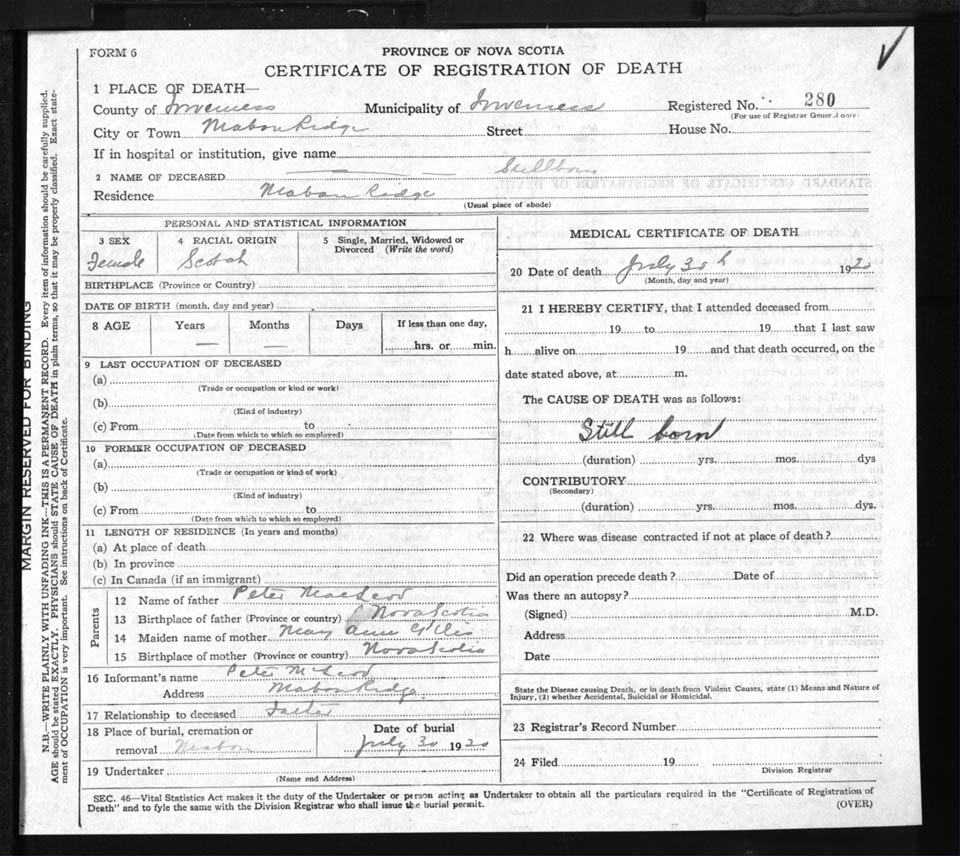 FORM 6
PROVINCE OF NOVA SCOTIA
CERTIFICATE OF REGISTRATION OF DEATH
1 PLACE OF DEATH—
County of Inverness Municipality of Inverness Registered No. 280
(For use of Registrar General only)
City or Town Mabou Ridge Street House No.
If in hospital or institution, give name
2 NAME OF DECEASED — — Stillborn
Residence Mabou Ridge
(Usual place of abode)
PERSONAL AND STATISTICAL INFORMATION
3 SEX 4 RACIAL ORIGIN 5 Single, Married, Widowed or
Divorced (Write the word)
Female Scotch
BIRTHPLACE (Province or Country)
DATE OF BIRTH (month, day and year)
8 AGE Years Months Days If less than one day,
— — hrs. or min.
9 LAST OCCUPATION OF DECEASED
(a)
(Trade or occupation or kind or work)
(b)
(Kind of industry)
(c) From to
(Date from which to which so employed)
10 FORMER OCCUPATION OF DECEASED
(a)
(Trade or occupation or kind of work)
(b)
(Kind of industry)
(c) From to
(Date from which to which so employed)
11 LENGTH OF RESIDENCE (In years and months)
(a) At place of death
(b) In province
(c) In Canada (if an immigrant)
Parents
12 Name of father Peter MacLeod
13 Birthplace of father (Province or country) Nova Scotia
14 Maiden name of mother Mary Ann Gillis
15 Birthplace of mother (Province or country) Nova Scotia
16 Informant's name Peter McLeod
Address Mabou Ridge
17 Relationship to deceased Father
18 Place of burial, cremation or
removal Mabou
Date of burial
July 30 1920
19 Undertaker
(Name and Address)
MEDICAL CERTIFICATE OF DEATH
20 Date of death July 30th 1920
(Month, day and year)
21 I HEREBY CERTIFY, that I attended deceased from
19 to 19 that I last saw
h alive on 19 and that death occurred, on the
date stated above, at m.
The CAUSE OF DEATH was as follows:
Still born
(duration) yrs. mos. dys
CONTRIBUTORY
(Secondary)
(duration) yrs. mos. dys.
22 Where was disease contracted if not at place of death?
Did an operation precede death? Date of
Was there an autopsy?
(Signed) M.D.
Address
Date
State the Disease causing Death, or in death from Violent Causes, state (1) Means and Nature of
Injury, (2) whether Accidental, Suicidal or Homicidal.
23 Registrar's Record Number
24 Filed 19
Division Registrar
SEC. 46—Vital Statistics Act makes it the duty of the Undertaker or person acting as Undertaker to obtain all the particulars required in the "Certificate of Registration of
Death" and to fyle the same with the Division Registrar who shall issue the burial permit.
(OVER)
MARGIN RESERVED FOR BINDING
N.B.—WRITE PLAINLY WITH UNFADING INK—THIS IS A PERMANENT RECORD. Every item of information should be carefully supplied.
AGE should be stated EXACTLY. PHYSICIANS should STATE CAUSE OF DEATH in plain terms, so that it may be properly classified. Exact state-
ment of OCCUPATION is very important. See instructions on back of Certificate.